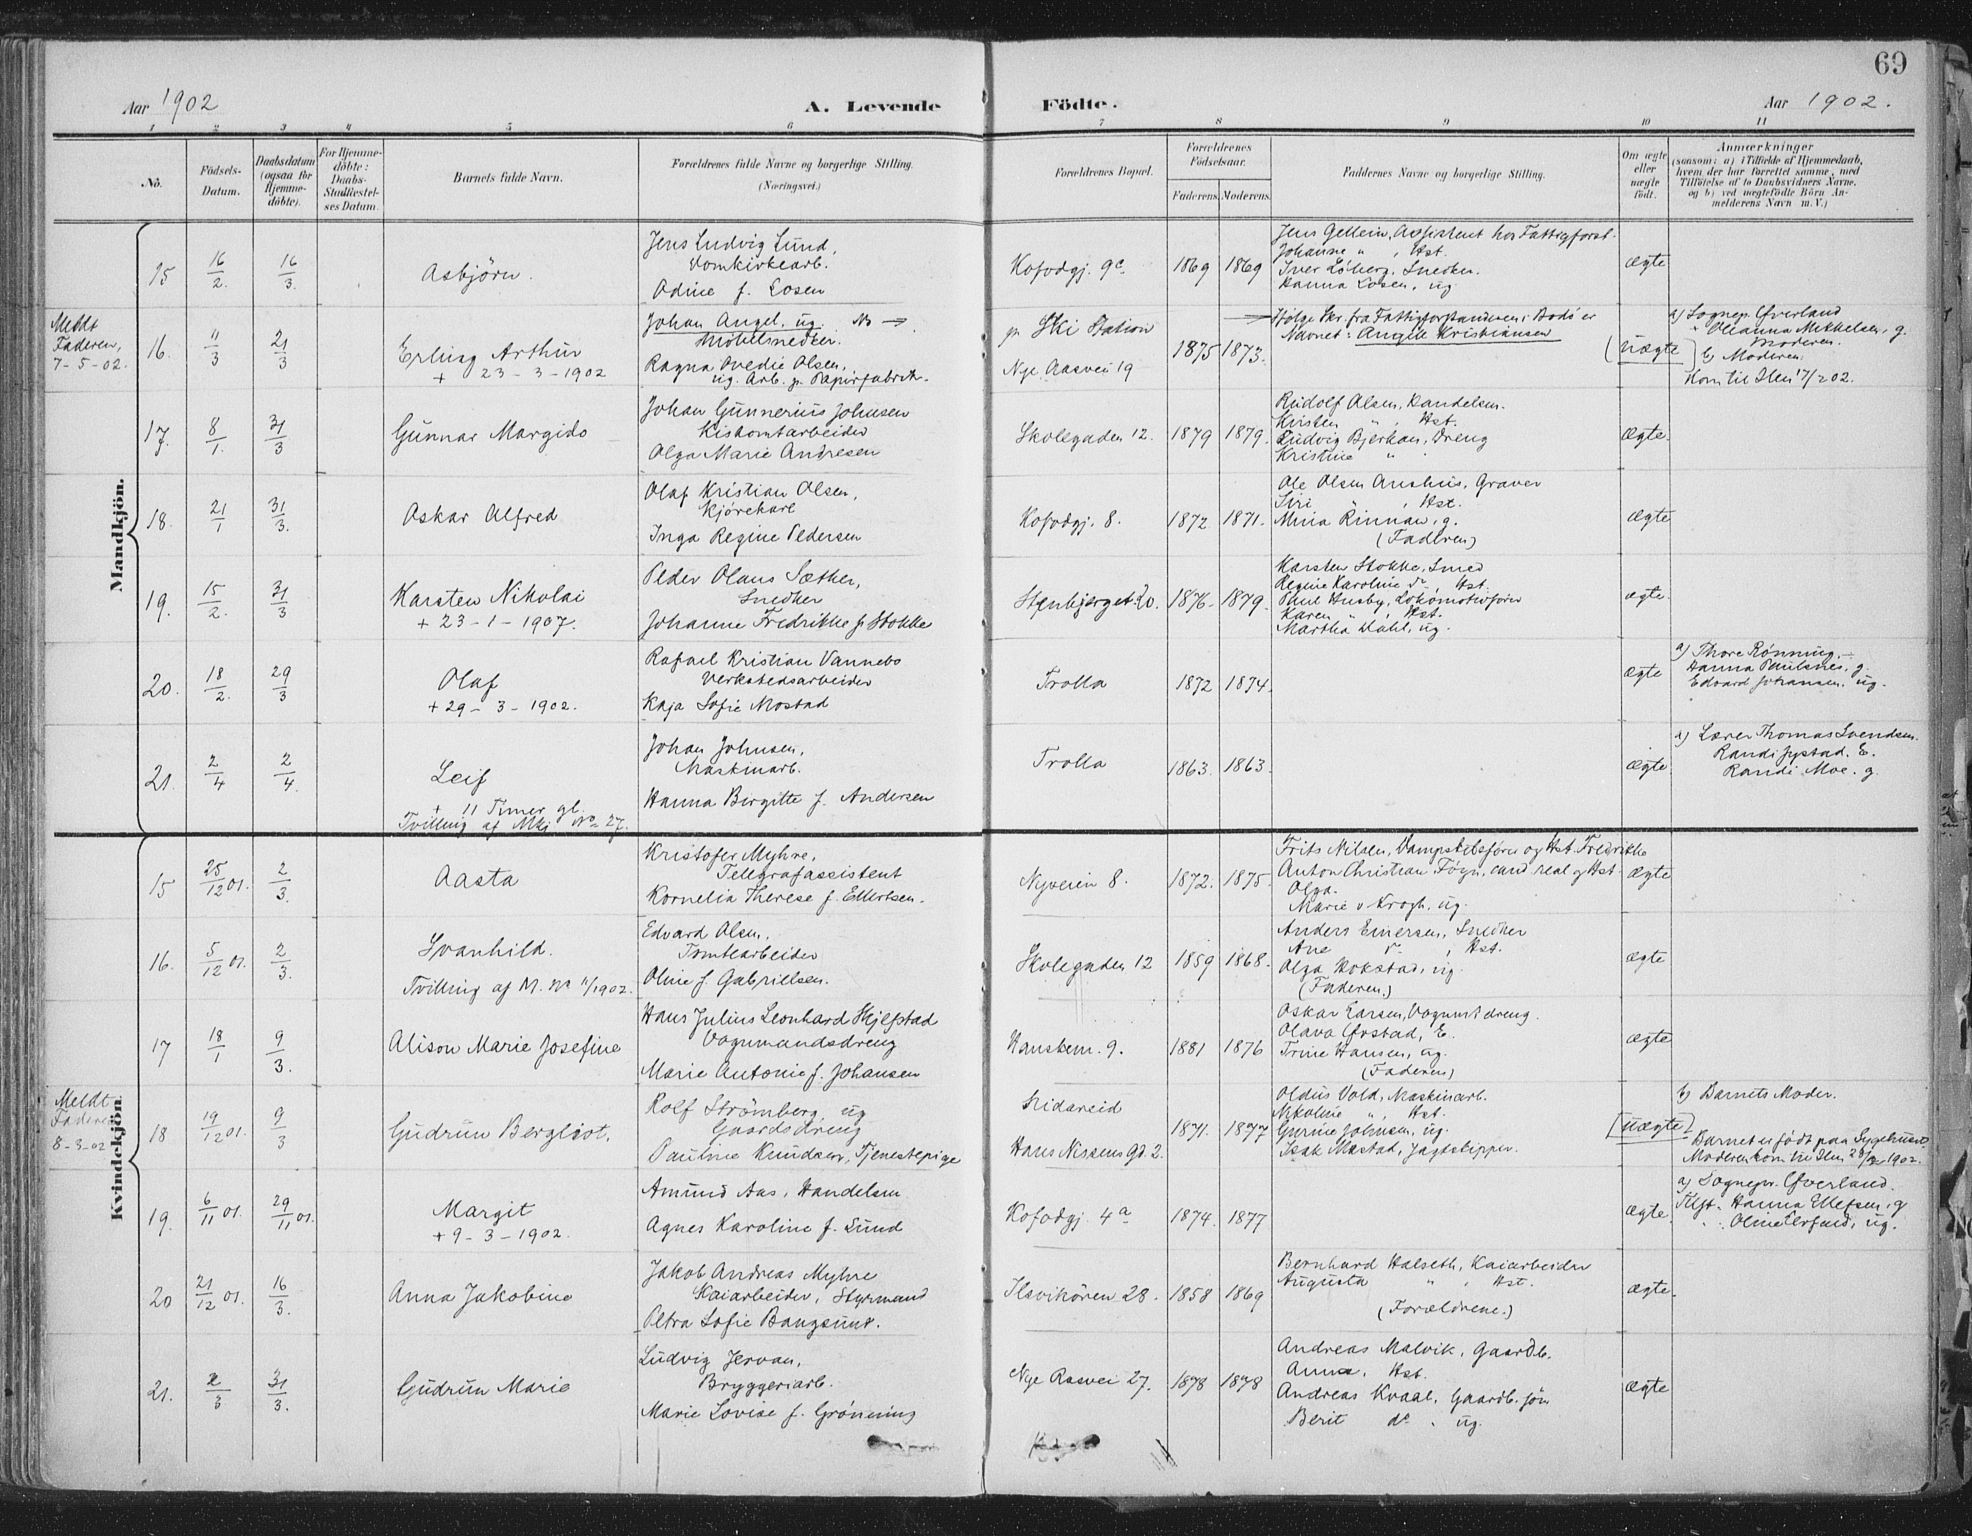 69
Aar 1902
A. Levende
Födte.
Aar 1902.
1 2 3 4 5 6 7 8 9 10 11
No.
Födsels-
Datum.
Daabsdatum
(ogsaa for
Hjemme-
döbte).
For Hjemme-
döbte:
Daabs-
Stadfæstel-
ses Datum.
Barnets fulde Navn.
Forældrenes fulde Navne og borgerlige Stilling.
(Næringsvei.)
Forældrenes Bopæl.
Forældrenes
Födselsaar.
Faderens. Moderens.
Faddernes Navne og borgerlige Stilling.
Om ægte
eller
uægte
født.
Anmærkninger
(saasom: a) i Tilfælde af Hjemmedaab,
hvem der har forrettet samme, med
Tilföielse af to Daabsvidners Navne,
og b) ved uægtefödte Börn An-
melderens Navn m. V.)
Mandkjön.
15 16/2. 16/3.
Asbjörn.
Jens Ludvig Lund,
Domkirkearb.
Odine f. Losen
Kofodgj. 9c. 1869 1869
Jens Gellein, Assistent hos Fattigforst.
Johanne " , Hst.
Iver Løberg, Snedker.
Hanna Losen, ug.
ægte
Meldt
Faderen,
7-5-02.
16. 11/3 21/3
Erling Arthur
+ 23-3-1902
Johan Angel, ug.
Möbelsnedker.
Ragna Ovedie Olsen,
ug. Arb. p. Papirfabrik.
p. Ski Station
Nye Aasvei 19
1875 1873.
Ifølge Skr. fra Fattigforstanderen i Bodö er
Navnet: Angell Kristiansen
uægte
a) Sognepr. Øverland
+ Oleanna Mikkelsen, g.
Moderen.
b) Moderen.
Kom til Ilen 17/2 02.
17. 8/1. 31/3
Gunnar Margido
Johan Gunnerius Johnsen
Olga Marie Andresen
Skolegaden 12. 1879 1879.
Rudolf Olsen, Handelsm.
Kirsten " , Hst.
Ludvig Bjerkan, Dreng
Kristine "
ægte.
18. 21/1 31/3.
Oskar Alfred
Olaf Kristian Olsen,
Kjörekarl
Inga Regine Pedersen
Kofodgj. 8. 1872 1871.
Ole Olsen Aunhus, Graver
Siri " , Hst.
Mina Rinnan, g.
(Faderen)
ægte
19. 15/2. 31/3
Karsten Nikolai
+ 23-1-1907.
Peder Olaus Sæther,
Snedker
Johanne Fredrikke f. Stokke
Stenbjerget 20. 1876- 1879.
Karsten Stokke, Smed
Regine Karoline do, Hst.
Paul Husby, Lokomotivförer
Karen " , Hst.
Martha Dahl, ug.
ægte
20. 18/2. 29/3
Olaf
+ 29-3-1902.
Rafael Kristian Vannebo
Verkstedsarbeider
Kaja Sofie Mostad
Trolla 1872 1874.
ægte
a) Thore Rønning.
Hanna Paulsnes, g.
Edvard Johansen, ug.
21. 2/4 2/4.
Leif
+ 11 Timer gl.
Tvilling af Mkj No 27.
Johan Johnsen,
Maskinarb.
Hanna Birgitte f. Andersen
Trolla 1863. 1863.
ægte
a) Lærer Thomas Svendsen.
Randi Moe. g.
Kvindekjön.
15 25/12 01. 2/3.
Aasta
Kristofer Myhre,
Telegrafassistent
Kornelia Therese f. Ellertsen.
Nyveien 8. 1872. 1875.
Frits Nilsen, Dampskibsfører og Hst. Fredrikke
Anton Christian Föyn, cand real og Hst.
Olga.
Marie v Krogh, ug.
ægte
16. 5/12 01. 2/3.
Svanhild.
Tvilling af M. No 11/1902.
Edvard Olsen,
Tomtearbeider
Oline f Gabrielsen.
Skolegaden 12 1859 1868.
Anders Einersen, Snedker
Ane do , Hst.
Olga Hokstad, ug.
(Faderen.)
ægte
17 18/1 9/3.
Alison Marie Josefine
Hans Julius Leonhard Skjelstad
Vognmandsdreng
Marie Antonie f. Johansen
Hanskem. 9. 1881 1876
Oskar Larsen, Vognm. dreng.
Olava Ørstad, E.
Trine Hansen, ug.
(Faderen)
ægte
Meldt
Faderen
8-3-02
18 19/12 01. 9/3
Gudrun Bergliot.
Rolf Strömberg, ug
Gaardsdreng
Pauline Knudsen, Tjenestepige
Hans Nissens Gd. 2.
1871. 1877
Oldus Vold, Maskinarb.
Nikoline " , Hst.
Gurine Johnsen, ug.
Isak Mæstad, Jagtskipper.
uægte
b) Barnets Moder.
Barnet er født paa Sygehuset
Moderen kom til Ilen 1902.
19. 6/11 01. 29/11 01.
Margit
+ 9-3-1902.
Amund Aas, Handelsm
Agnes Karoline f. Lund
Kofodgj. 4a 1874. 1877
ægte.
a) Sognepr. Øverland.
Tilst. Hanna Ulefsen, g
20 21/12 01. 16/3.
Anna Jakobine
Jakob Andreas Myhre
Kaiarbeider, Styrmand
Petra Sofie Bangsund.
Ilsvikören 28. 1858 1869
Bernhard Halseth, Kaiarbeider
Augusta " , Hst.
(Forældrene.)
ægte.
21. 2/3 31/3.
Gudrun Marie
Ludvig Jervan,
Bryggeriarb.
Marie Lovise f. Grönning
Nye Aasvei 27. 1878 1878
Andreas Malvik, Gaardb.
Anna, Hst.
Andreas Kvaal, Gaardb. sön
Berit do , ug.
ægte